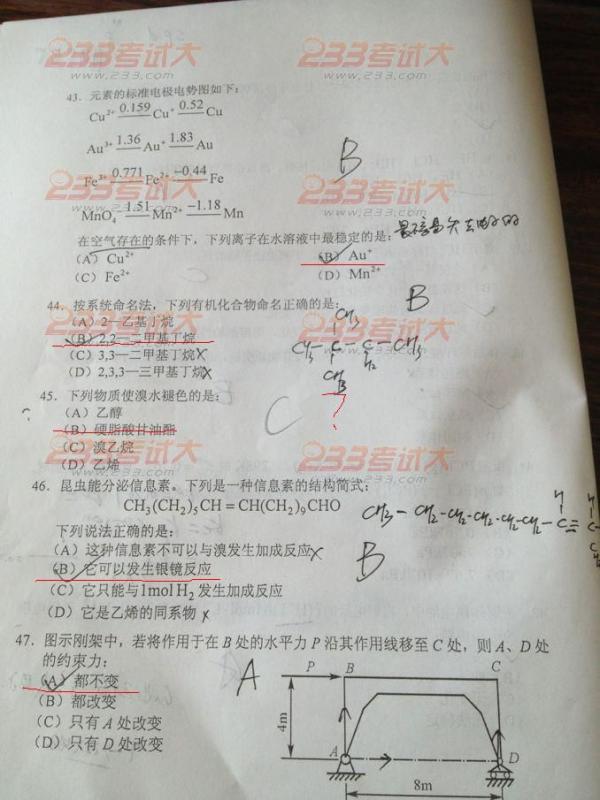 233考试大
www.233.com
43. 元素的标准电极电势图如下：
Cu²⁺ 0.159 Cu⁺ 0.52 Cu
Au³⁺ 1.36 Au⁺ 1.83 Au
Fe³⁺ 0.771 Fe²⁺ -0.44 Fe
MnO₄⁻ 1.51 Mn²⁺ -1.18 Mn
B
在空气存在的条件下，下列离子在水溶液中最稳定的是：
(A) Cu²⁺ (B) Au⁺
(C) Fe²⁺ (D) Mn²⁺
44. 按系统命名法，下列有机化合物命名正确的是：
B
(A) 2—乙基丁烷
(B) 2,2—二甲基丁烷
(C) 3,3—二甲基丁烷
(D) 2,3,3—三甲基丁烷
CH₃
CH₃—C—C—CH₃
H₂
CH₃
?
45. 下列物质使溴水褪色的是：
(A) 乙醇
(B) 硬脂酸甘油酯
(C) 溴乙烷
(D) 乙烯
C
46. 昆虫能分泌信息素。下列是一种信息素的结构简式：
CH₃(CH₂)₅CH＝CH(CH₂)₉CHO
CH₃—CH₂—CH₂-CH₂-CH₂-CH₂—C=
下列说法正确的是：
(A) 这种信息素不可以与溴发生加成反应
(B) 它可以发生银镜反应
(C) 它只能与1mol H₂发生加成反应
(D) 它是乙烯的同系物
B
47. 图示刚架中，若将作用于在B处的水平力P沿其作用线移至C处，则A、D处
的约束力：
(A) 都不变
(B) 都改变
(C) 只有A处改变
(D) 只有D处改变
A
P B C
4m
A D
8m